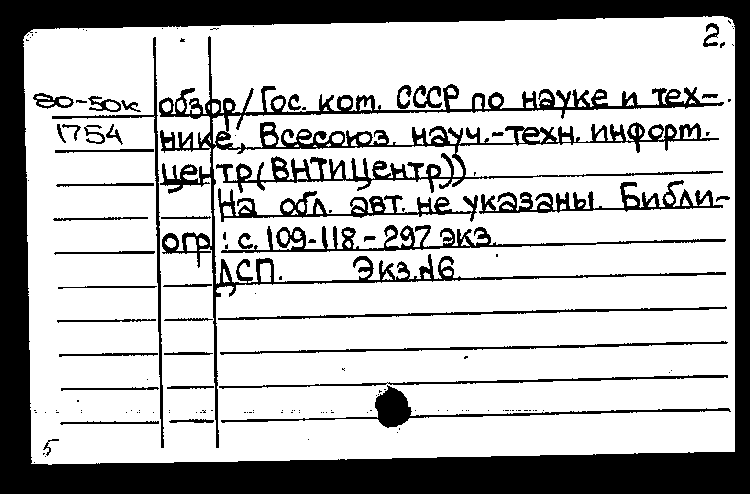 2.
80-50к обзор/Гос. ком. СССР по науке и тех-
1754 нике, Всесоюз. науч.-техн. информ.
центр(ВНТИЦентр))
На обл. авт. не указаны. Библи-
огр.: с. 109-118.- 297 экз.
ДСП. Экз.№6
5